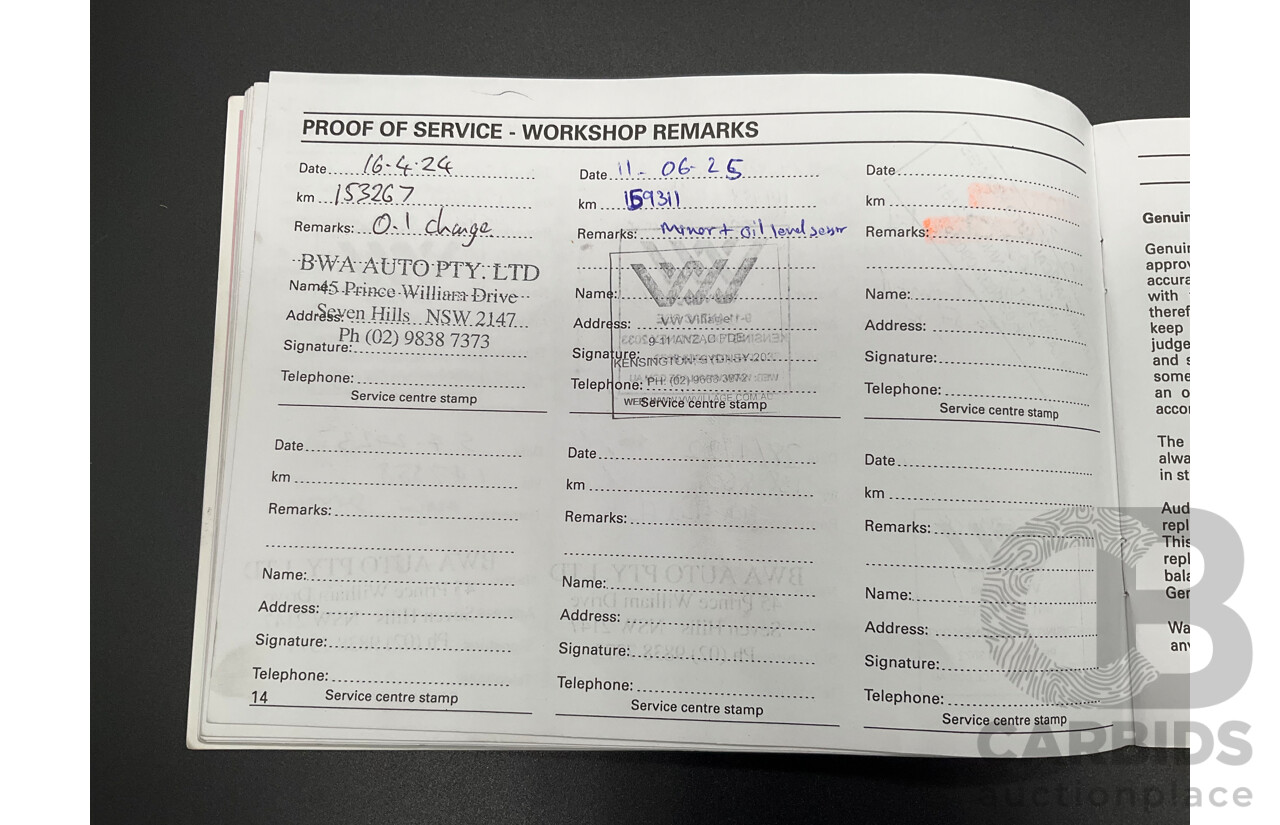 PROOF OF SERVICE - WORKSHOP REMARKS
Date 16-4-24
km 153267
Remarks: Oil change
BWA AUTO PTY. LTD
Name:
45 Prince William Drive
Address:
Seven Hills NSW 2147
Ph (02) 9838 7373
Signature:
Telephone:
Service centre stamp
Date 11-06-25
km 159311
Remarks: Minor + oil level sensor
VW
Name:
Address: VW Village
Signature:
KENSINGTON, SYDNEY
Telephone: PH: (02)
Service centre stamp
Date
km
Remarks:
Name:
Address:
Signature:
Telephone:
Service centre stamp
Date
km
Remarks:
Name:
Address:
Signature:
Telephone:
Service centre stamp
14
Date
km
Remarks:
Name:
Address:
Signature:
Telephone:
Service centre stamp
Date
km
Remarks:
Name:
Address:
Signature:
Telephone:
Service centre stamp
Genuin
Genuin
approv
accura
with
theref
keep
judge
and s
some
an o
accor
The
alwa
in st
Aud
repl
This
repl
bala
Gen
Wa
any
CB
CARBIDS
auctionplace